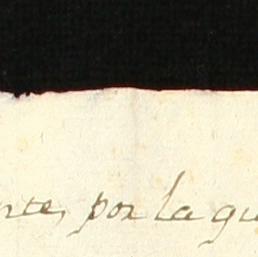 nte, por la gu